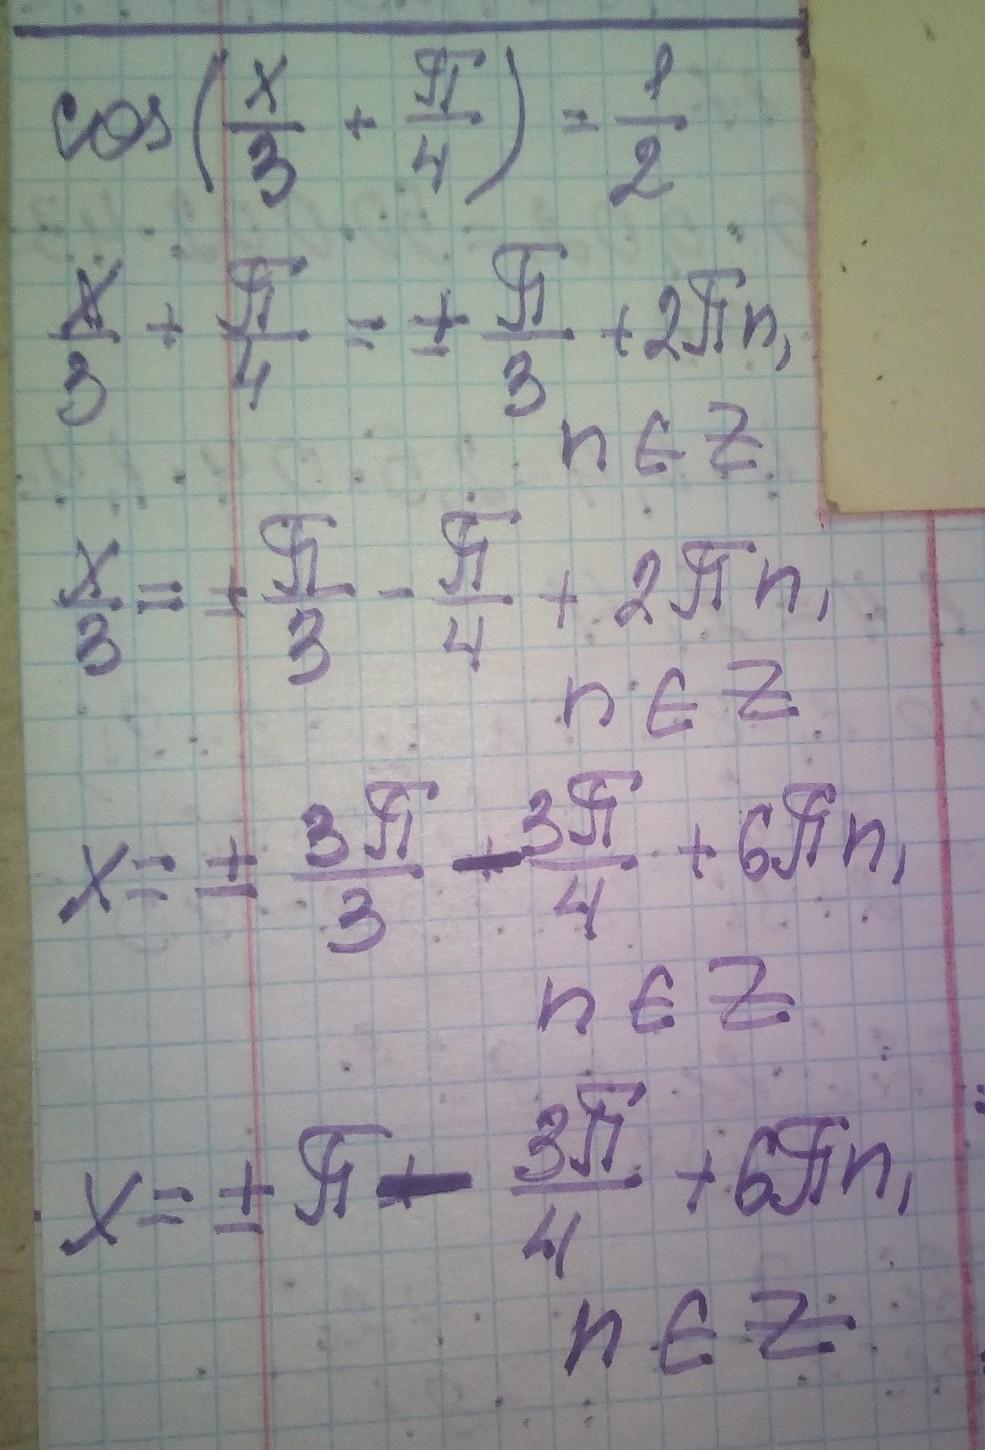 cos(x/3 + π/4) = 1/2
x/3 + π/4 = ± π/3 + 2πn,
n ∈ Z
x/3 = ± π/3 - π/4 + 2πn,
n ∈ Z
x = ± 3π/3 - 3π/4 + 6πn,
n ∈ Z
x = ± π - 3π/4 + 6πn,
n ∈ Z